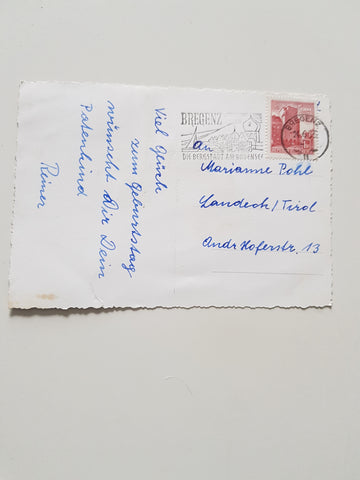 Viel Glück
zum Geburtstag
wünscht Dir Dein
Patenkind
Rainer
BREGENZ
DIE BERGSTADT AM BODENSEE
BREGENZ
An
Marianne Pohl
Landeck/Tirol
Andr. Hoferstr. 13